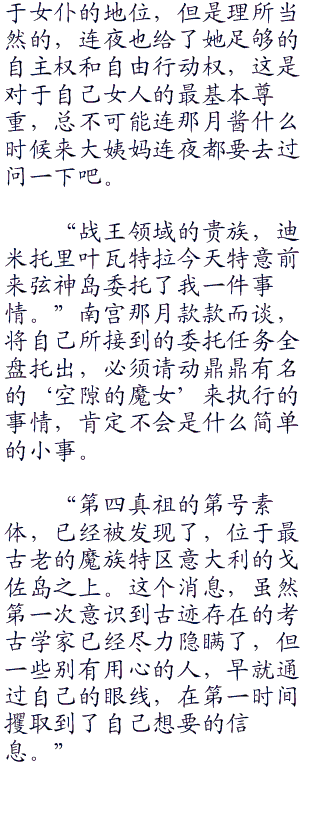 于女仆的地位，但是理所当
然的，连夜也给了她足够的
自主权和自由行动权，这是
对于自己女人的最基本尊
重，总不可能连那月酱什么
时候来大姨妈连夜都要去过
问一下吧。
“战王领域的贵族，迪
米托里叶瓦特拉今天特意前
来弦神岛委托了我一件事
情。”南宫那月款款而谈，
将自己所接到的委托任务全
盘托出，必须请动鼎鼎有名
的‘空隙的魔女’来执行的
事情，肯定不会是什么简单
的小事。
“第四真祖的第号素
体，已经被发现了，位于最
古老的魔族特区意大利的戈
佐岛之上。这个消息，虽然
第一次意识到古迹存在的考
古学家已经尽力隐瞒了，但
一些别有用心的人，早就通
过自己的眼线，在第一时间
攫取到了自己想要的信
息。”